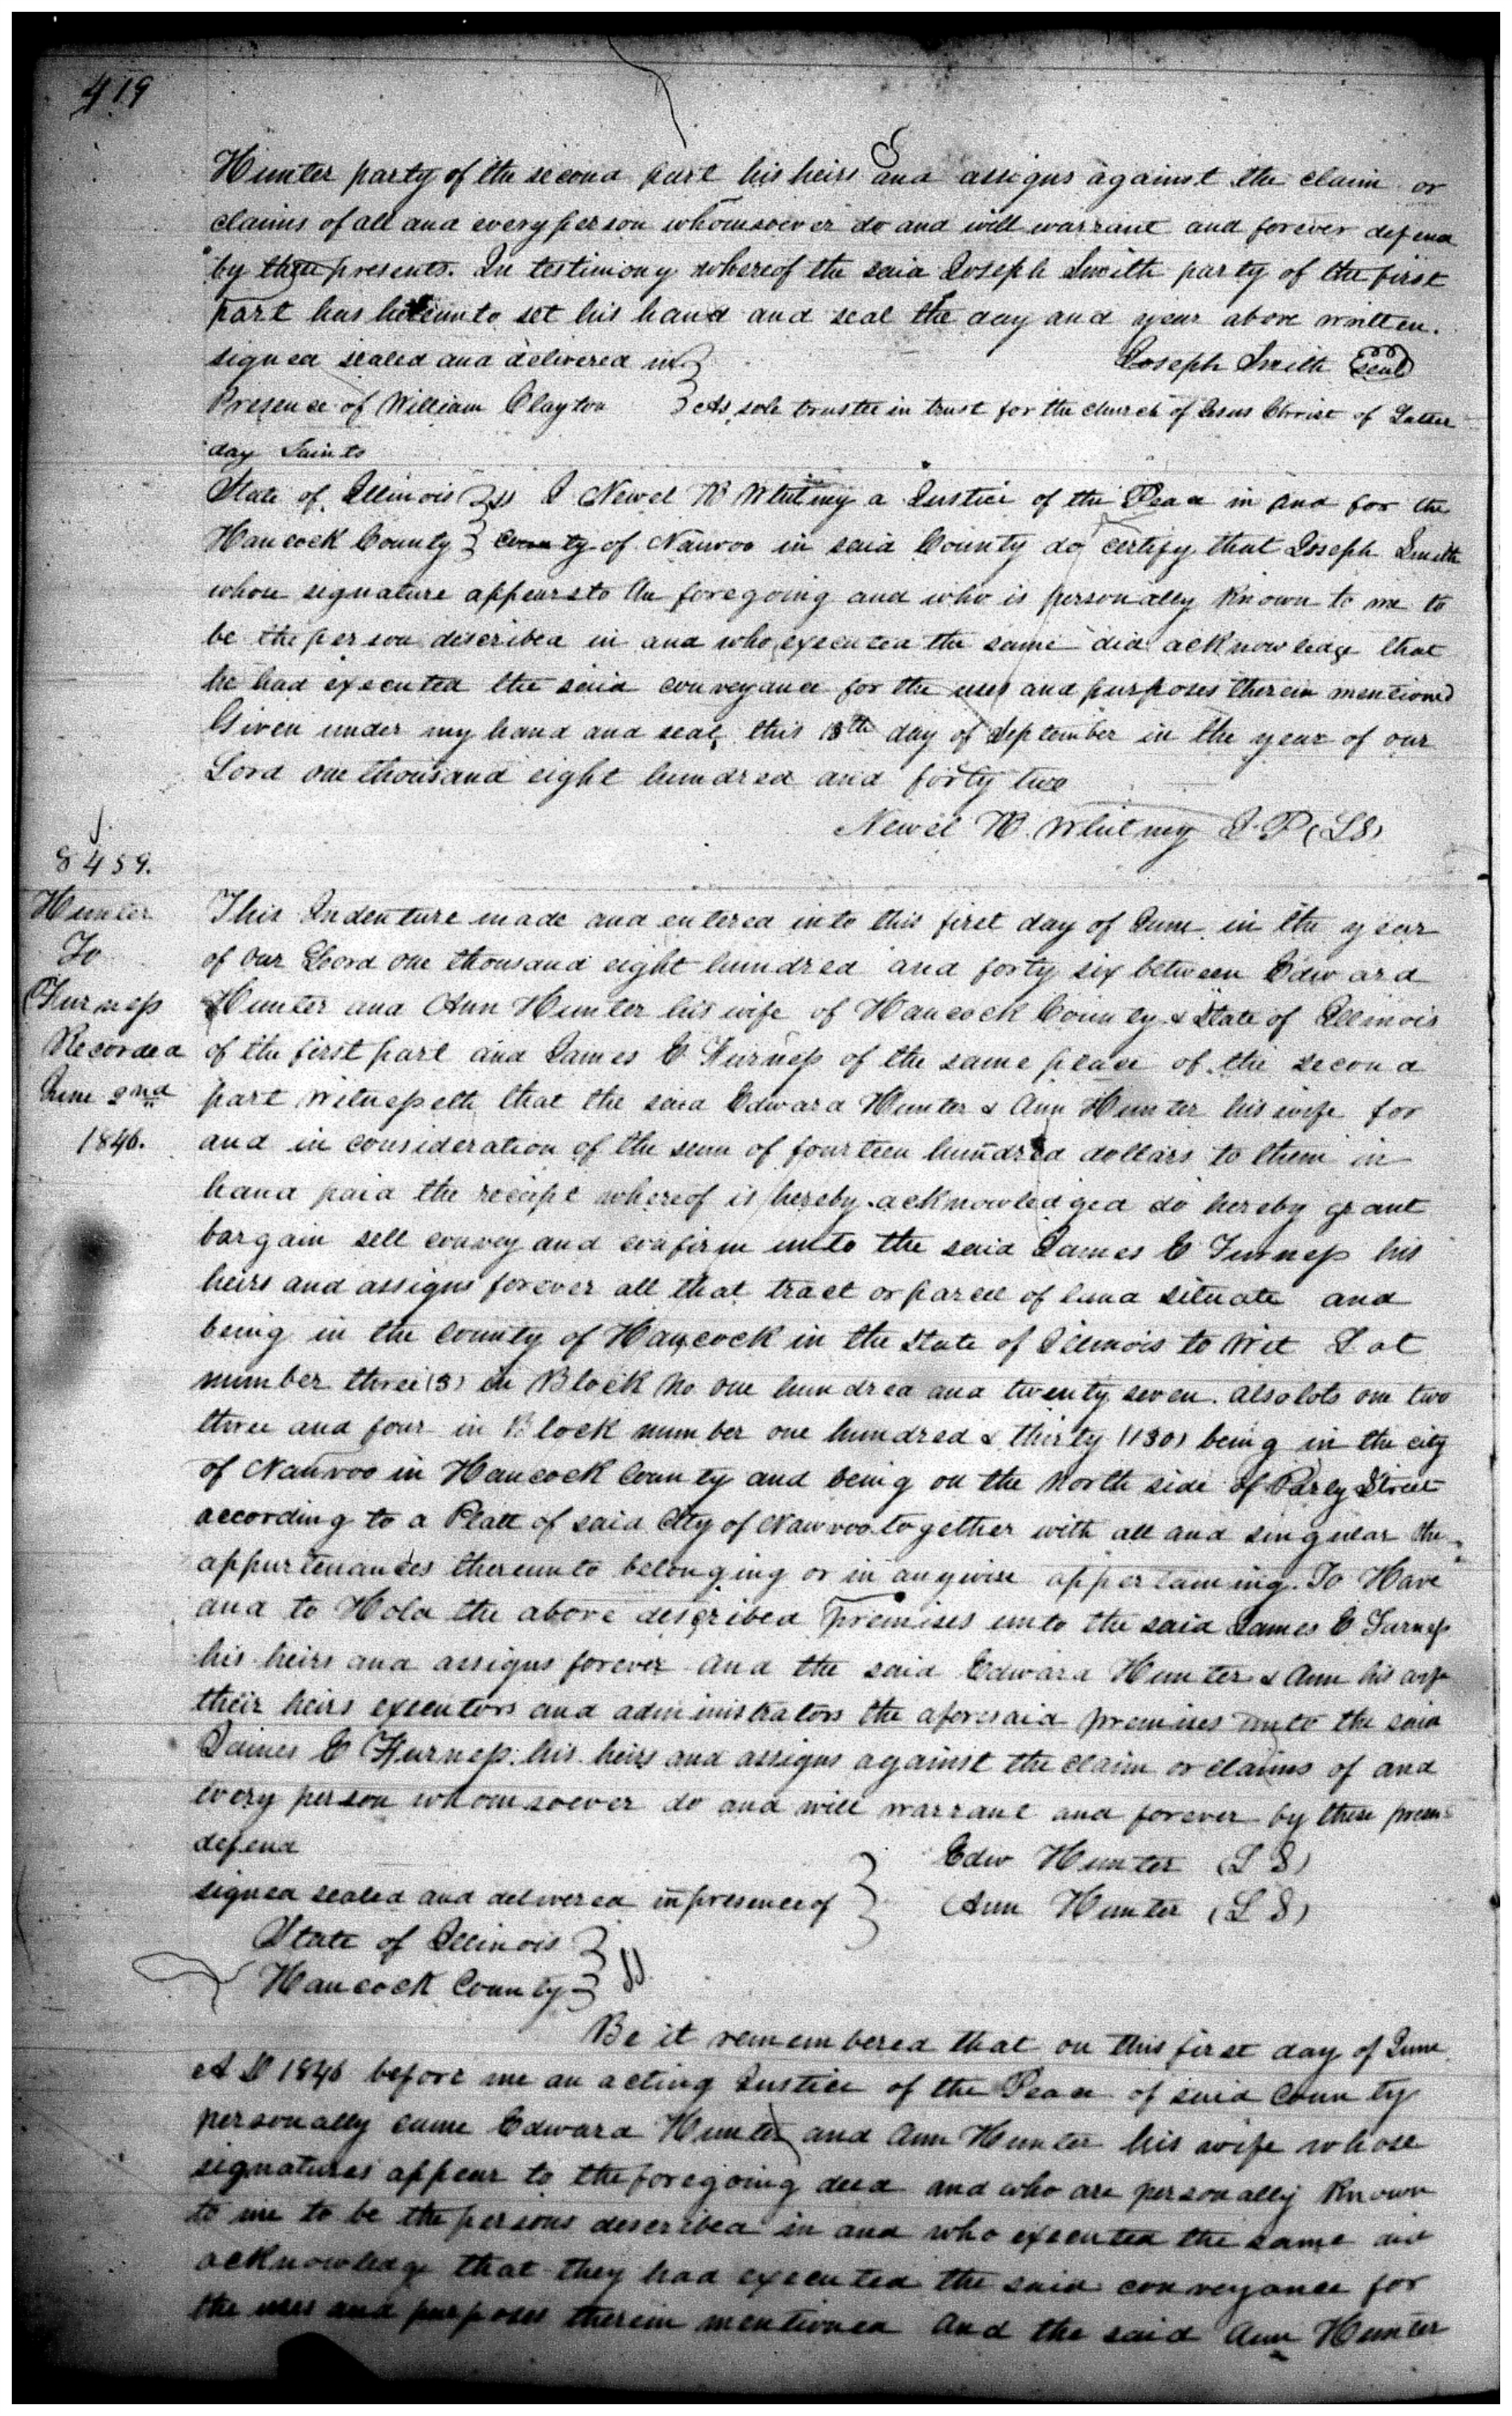 419
Hunter party of the second part his heirs and assigns against the claim or
claims of all and every person whomsoever do and will warrant and forever defend
by these presents. In testimony whereof the said Joseph Smith party of the first
part has hereunto set his hand and seal the day and year above written.
signed sealed and delivered in } Joseph Smith (seal)
Presence of William Clayton } As sole trustee in trust for the church of Jesus Christ of Latter
day Saints
State of Illinois } ss I Newel K Whitney a Justice of the Peace in and for the
Hancock County } County of Nauvoo in said County do certify that Joseph Smith
whose signature appears to the foregoing and who is personally Known to me to
be the person described in and who executed the same did acknowledge that
he had executed the said conveyance for the uses and purposes therein mentioned
Given under my hand and seal this 13th day of September in the year of our
Lord one thousand eight hundred and forty two
Newel K. Whitney J. P (L S)
J.
8459.
Hunter
To
Furness
Recorded
June 2nd
1846.
This Indenture made and entered into this first day of June in the year
of our Lord one thousand eight hundred and forty six between Edward
Hunter and Ann Hunter his wife of Hancock County & State of Illinois
of the first part and James C Furness of the same place of the second
part Witnesseth that the said Edward Hunter & Ann Hunter his wife for
and in consideration of the sum of fourteen hundred dollars to them in
hand paid the receipt whereof is hereby acknowledged do hereby grant
bargain sell convey and confirm unto the said James C Furness his
heirs and assigns forever all that tract or parcel of land situate and
being in the county of Hancock in the State of Illinois to Wit Lot
number three (3) in Block No one hundred and twenty seven. also lots one two
three and four in Block number one hundred & thirty (130) being in the city
of Nauvoo in Hancock County and being on the North side of Parly Street
according to a Platt of said City of Nauvoo together with all and singular the
appurtenances thereunto belonging or in anywise appertaining. To Have
and to Hold the above described premises unto the said James C Furness
his heirs and assigns forever and the said Edward Hunter & Ann his wife
their heirs executors and administrators the aforesaid premises unto the said
James C Furness his heirs and assigns against the claim or claims of and
every person whomsoever do and will warrant and forever by these
defend
signed sealed and delivered in presence of } Edw Hunter (L S)
Ann Hunter (L S)
State of Illinois } ss.
Hancock County }
Be it remembered that on this first day of June
A D 1846 before me an acting Justice of the Peace of said County
personally came Edward Hunter and Ann Hunter his wife whose
signatures appear to the foregoing deed and who are personally Known
to me to be the persons described in and who executed the same did
acknowledge that they had executed the said conveyance for
the uses and purposes therein mentioned and the said Ann Hunter